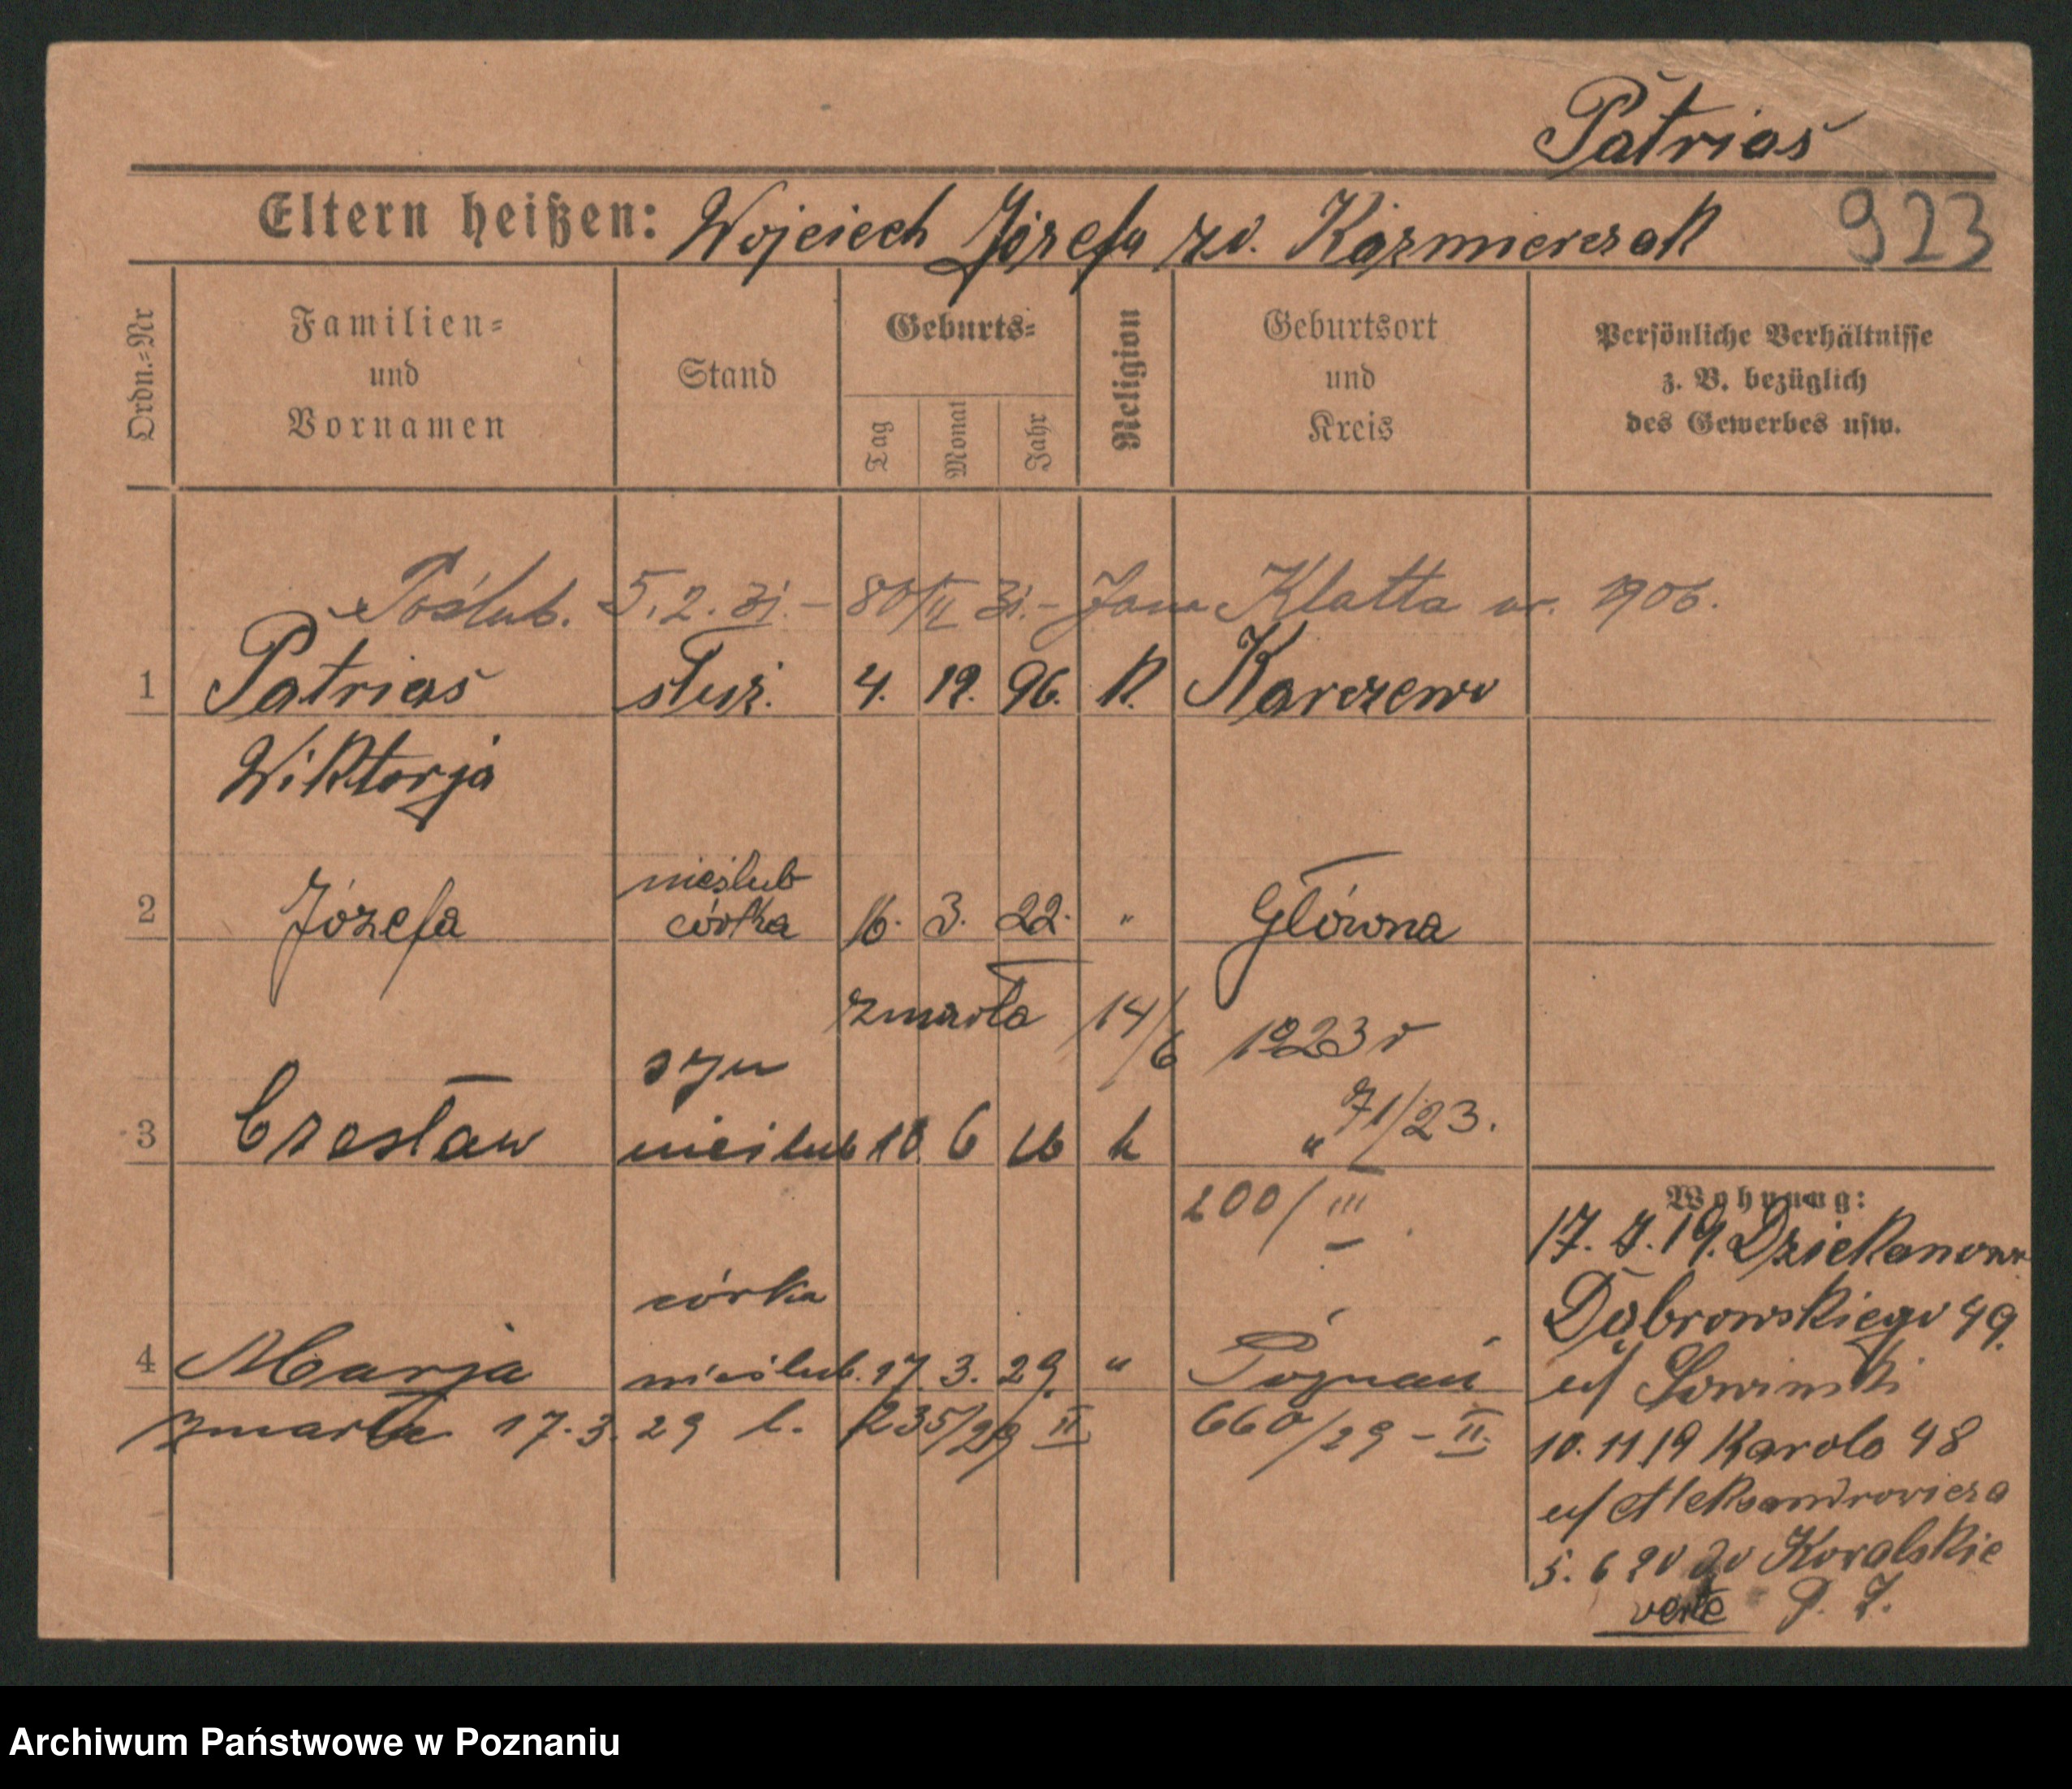 Patrias
Eltern heißen: Wojciech Józefa zd. Kaźmierczak
923
Ordn.=Nr
Familien=
und
Vornamen
Stand
Geburts=
Tag
Monat
Jahr
Religion
Geburtsort
und
Kreis
Persönliche Verhältnisse
z. B. bezüglich
des Gewerbes usw.
Poślub. 5.2.31. – 80/II 31. – Jana Klatta ur. 1906.
1 Patrias służ. 4. 12. 96. k. Karczewo
Wiktorja
nieślub
2 Józefa córka 16. 3. 22. " Główna
zmarła 14/6 1923 r
syn 71/23.
3 Czesław nieślub 10 6 26 k "
200/III
córka
4 Marja nieślub. 17. 3. 29. " Poznań
zmarła 17.3.29 l. 235/29 II 660/29 – II.
Wohnung:
17. 7. 19. Dziekanowe
Dąbrowskiego 49.
u/ Łowiński
10. 11 19 Karola 48
u/ Aleksandrowicza
5. 6 20 do Kowalskie
verte P. J.
Archiwum Państwowe w Poznaniu